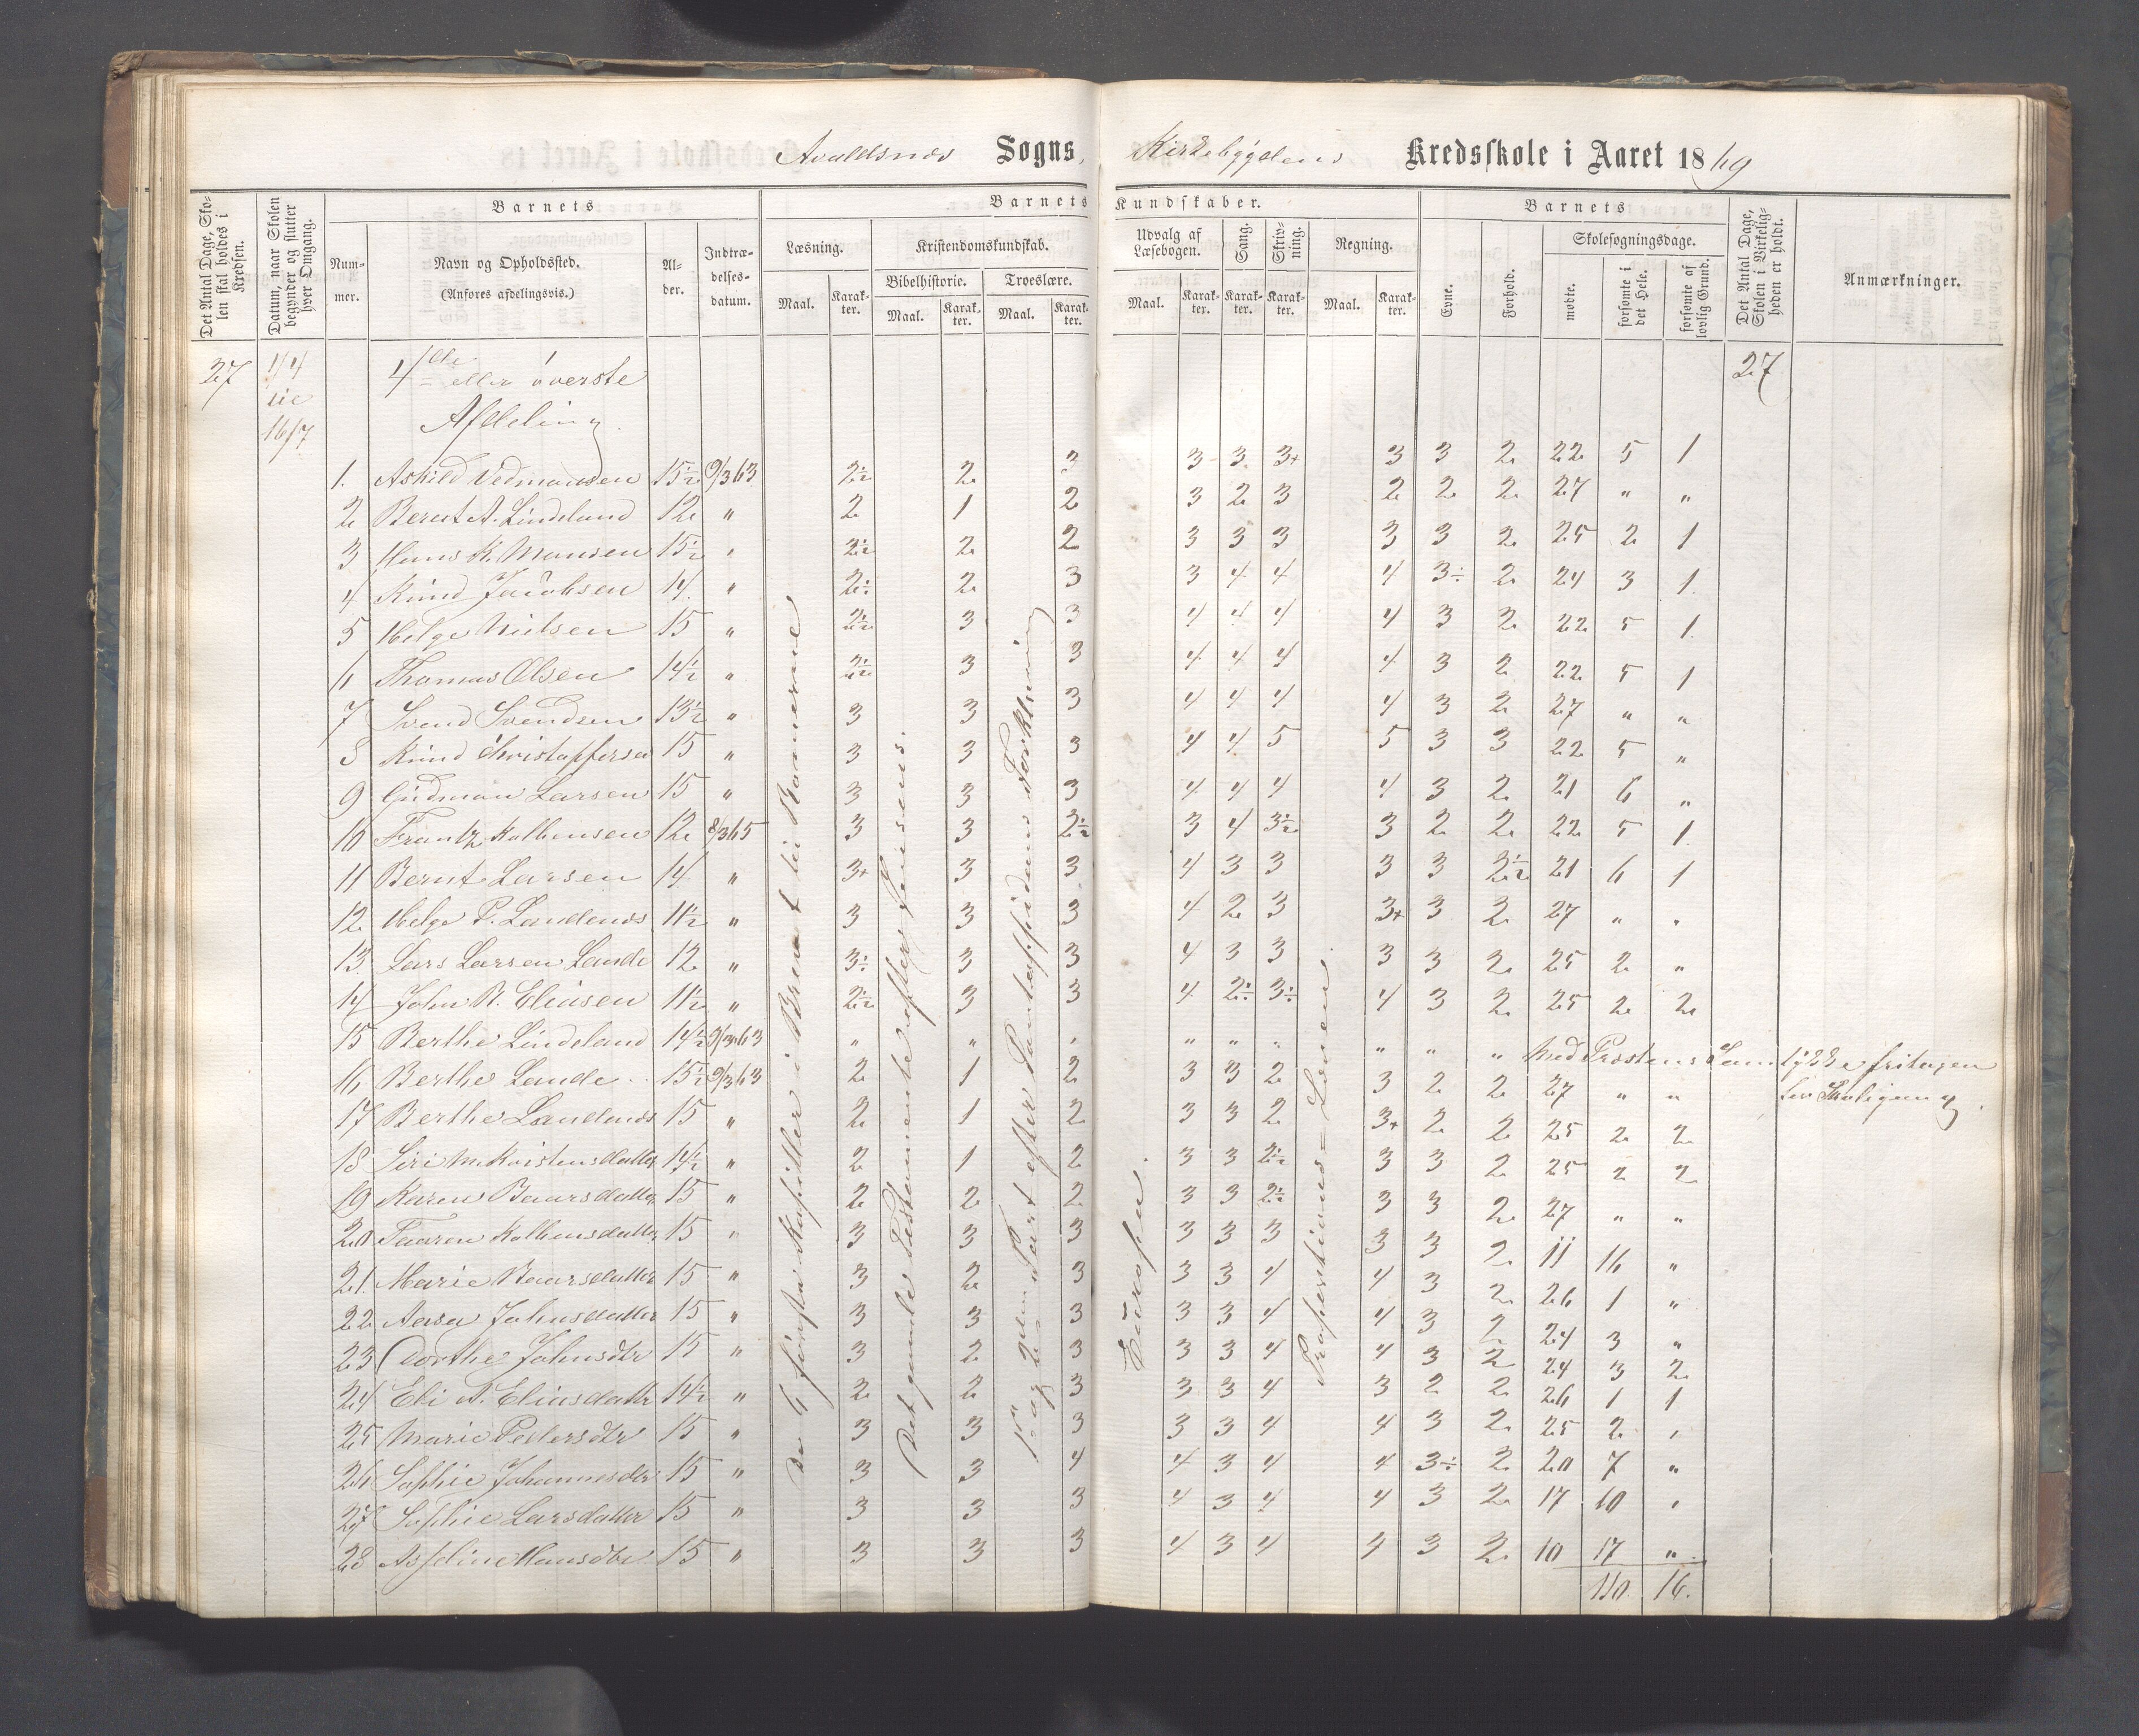 Avaldsnes Sogns, Kirkebygdens Kredsskole i Aaret 1869
Det Antal Dage, Skolen skal holdes i Kredsen.
Datum, naar Skolen begynder og slutter hver Omgang.
Barnets
Nummer.
Navn og Opholdssted.
(Anføres afdelingsvis.)
Alder.
Indtrædelsesdatum.
Barnets Kundskaber.
Læsning.
Maal.
Karakter.
Kristendomskundskab.
Bibelhistorie.
Maal.
Karakter.
Troeslære.
Maal.
Karakter.
Udvalg af Læsebogen.
Maal.
Karakter.
Sang.
Karakter.
Skrivning.
Karakter.
Regning.
Maal.
Karakter.
Barnets
Evne.
Forhold.
Skolesøgningsdage.
mødte.
forsømte i det Hele.
forsømte af lovlig Grund.
Det Antal Dage, Skolen i Virkeligheden er holdt.
Anmærkninger.
27 1/4 til 16/7 4de eller øverste Afdeling. 27
1. Askild Vedmandsen 15½ 9/3 63 2½ 2 3 3 3 3+ 3 3 2 22 5 1
2 Bernt A. Lindeland 12 " 2 1 2 3 2 3 2 2 2 27 " "
3 Hans K. Monsen 15½ " 2½ 2 2 3 3 3 3 3 2 25 2 1
4 Knud Jacobsen 14 " 2÷ 2 3 3 4 4 4 3÷ 2 24 3 1
5 Helge Nielsen 15 " 2½ 3 3 4 4 4 4 3 2 22 5 1
6 Thomas Olsen 14½ " 2½ 3 3 4 4 4 4 3 2 22 5 1
7 Svend Svendsen 13½ " 3 3 3 4 4 4 4 3 2 27 " "
8 Knud Christoffersen 15 " 3 3 3 4 4 5 5 3 3 22 5 "
9 Gudman Larsen 15 " 3 3 3 4 4 4 4 3 2 21 6 "
10 Frantz Kolbensen 12 8/3 65 3 3 2½ 3 4 3½ 3 2 2 22 5 1
11 Bernt Larsen 14 " 3+ 3 3 4 3 3 3 3 2½ 21 6 1
12 Helge P. Landenes 11½ " 3 3 3 4 2 3 3+ 3 2 27 " "
13. Lars Larsen Lande 12 " 3÷ 3 3 4 3 3 3 3 2 25 2 "
14 John B. Eliasen 11½ " 2½ 3 3 4 2÷ 3÷ 4 3 2 25 2 2
15 Berthe Lindeland 14½ 9/3 63 " " " " " " " " " Med Prostens Samtykke fritagen
for Skolegang.
16 Berthe Lande 15½ 9/3 63 2 1 2 3 3 2 3 2 2 27 " "
17 Berthe Landenes 15 " 2 1 2 3 3 2 3+ 2 2 25 2 2
18 Siri M. Kristensdatter 14½ " 2 1 2 3 3 2½ 3 3 2 25 2 2
19 Karen Baarsdatter 15 " 2 2 2 3 3 2½ 3 3 2 27 " "
20 Taaren Kolbensdatter 15 " 3 3 3 3 3 3 3 3 2 11 16 "
21. Marie Baarsdatter 15 " 3 2 3 3 3 4 4 3 2 26 1 "
22 Aasa Johnsdatter 15 " 3 3 3 3 3 4 4 3 2 24 3 "
23 Dorthe Johnsdtr 15 " 3 2 3 3 3 4 4 3 2 24 3 2
24 Eli A. Eliasdatter 14½ " 2 2 3 3 3 4 3 2 2 26 1 1
25 Marie Pedersdtr 15 " 3 3 3 3 3 4 4 3 2 25 2 "
26 Sophie Johannesdtr 15 " 3 3 4 4 3 4 4 3÷ 2 20 7 "
27 Sophie Larsdatter 15 " 3 3 3 4 3 4 4 3 2 17 10 "
28 Asseline Hansdtr 15 " 3 3 3 4 3 4 4 3 2 10 17 "
110 16.
De 6 første Kapitler i Brevet til Romerne
Det gamle Testamente efter Lævesens.
1ste og 2den Part efter Pontoppidans Forklaring
Europa.
Proportions-Læren.